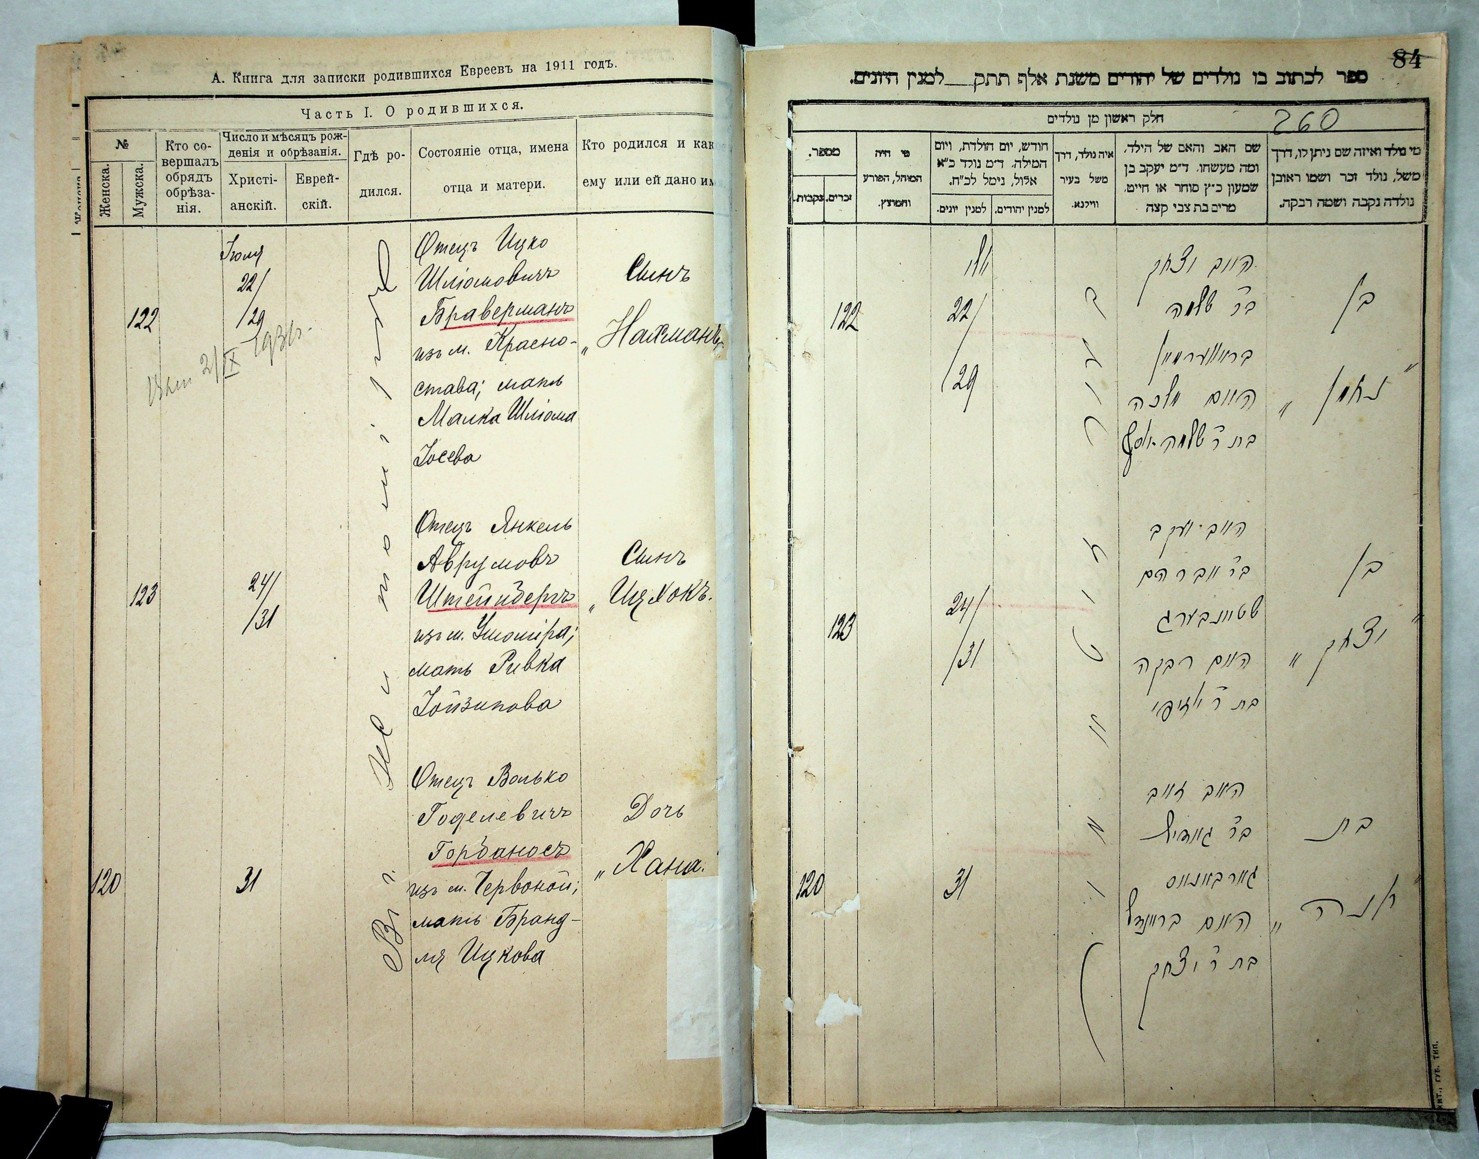 А. Книга для записки родившихся Евреевъ на 1911 годъ.
Часть I. О родившихся.
№
Женска.
Мужска.
Кто со-
вершалъ
обрядъ
обрѣза-
нія.
Число и мѣсяцъ рож-
денія и обрѣзанія.
Христі-
анскій.
Еврей-
скій.
Гдѣ ро-
дился.
Состояніе отца, имена
отца и матери.
Кто родился и как
ему или ей дано им
122
Іюля
22/
/29
2/IX 1931г.
Отецъ Ицко
Шліомовичъ
Браверманъ
изъ м. Красно-
става; мать
Малка Шліома
Іосева
Сынъ
„Нахманъ
123
24/
/31
Отецъ Янкель
Аврумовъ
Штейнбергъ
изъ м.
мать Ривка
Сынъ
„Ицхокъ.
120
31
Отецъ Волько
Годелевичъ
Горбаносъ
изъ м. Червоной;
мать Бранд-
ля Ицкова
Дочь
„Хана.
Въ г. Житомірѣ
84
ספר לכתוב בו נולדים של יהודים משנת אלף תתק למנין היונים.
260
חלק ראשון מן נולדים
מספר.
נקבות.
זכרים.
מי היה
המוהל, הפורע
והמוצץ.
חודש, יום הולדת, ויום
המילה. ד״מ נולד כ״א
אלול, נימל לכ״ח.
למנין יונים.
למנין יהודים.
איה נולד, דרך
משל בעיר
ווילנא.
שם האב והאם של הילד.
ומה מעשהו. ד״מ יעקב בן
שמעון כ״ץ סוחר או חייט.
מרים בת צבי קצה
מי נולד ואיזה שם ניתן לו, דרך
משל, נולד זכר ושמו ראובן
נולדה נקבה ושמה רבקה.
122
יולי
22/
/29
האב יצחק
בר׳ שלמה
בראווערמאן
האם מלכה
בת ר׳ שלמה יוסף
בן
„נחמן"
123
24/
/31
האב יעקב
בר׳ אברהם
שטיינבערג
האם רבקה
בן
„יצחק"
120
31
האב זאב
בר׳ גאדיל
גארבאנאס
האם בריינדל
בת ר׳ יצחק
בת
„חנה"